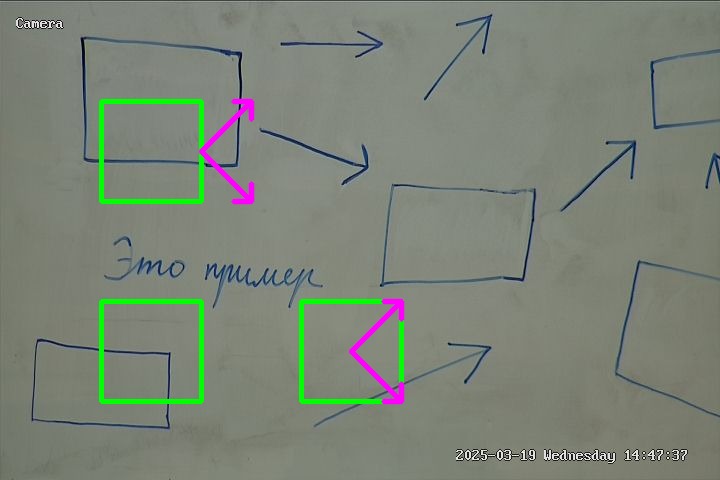 Camera
Это пример
2025-03-19 Wednesday 14:47:37